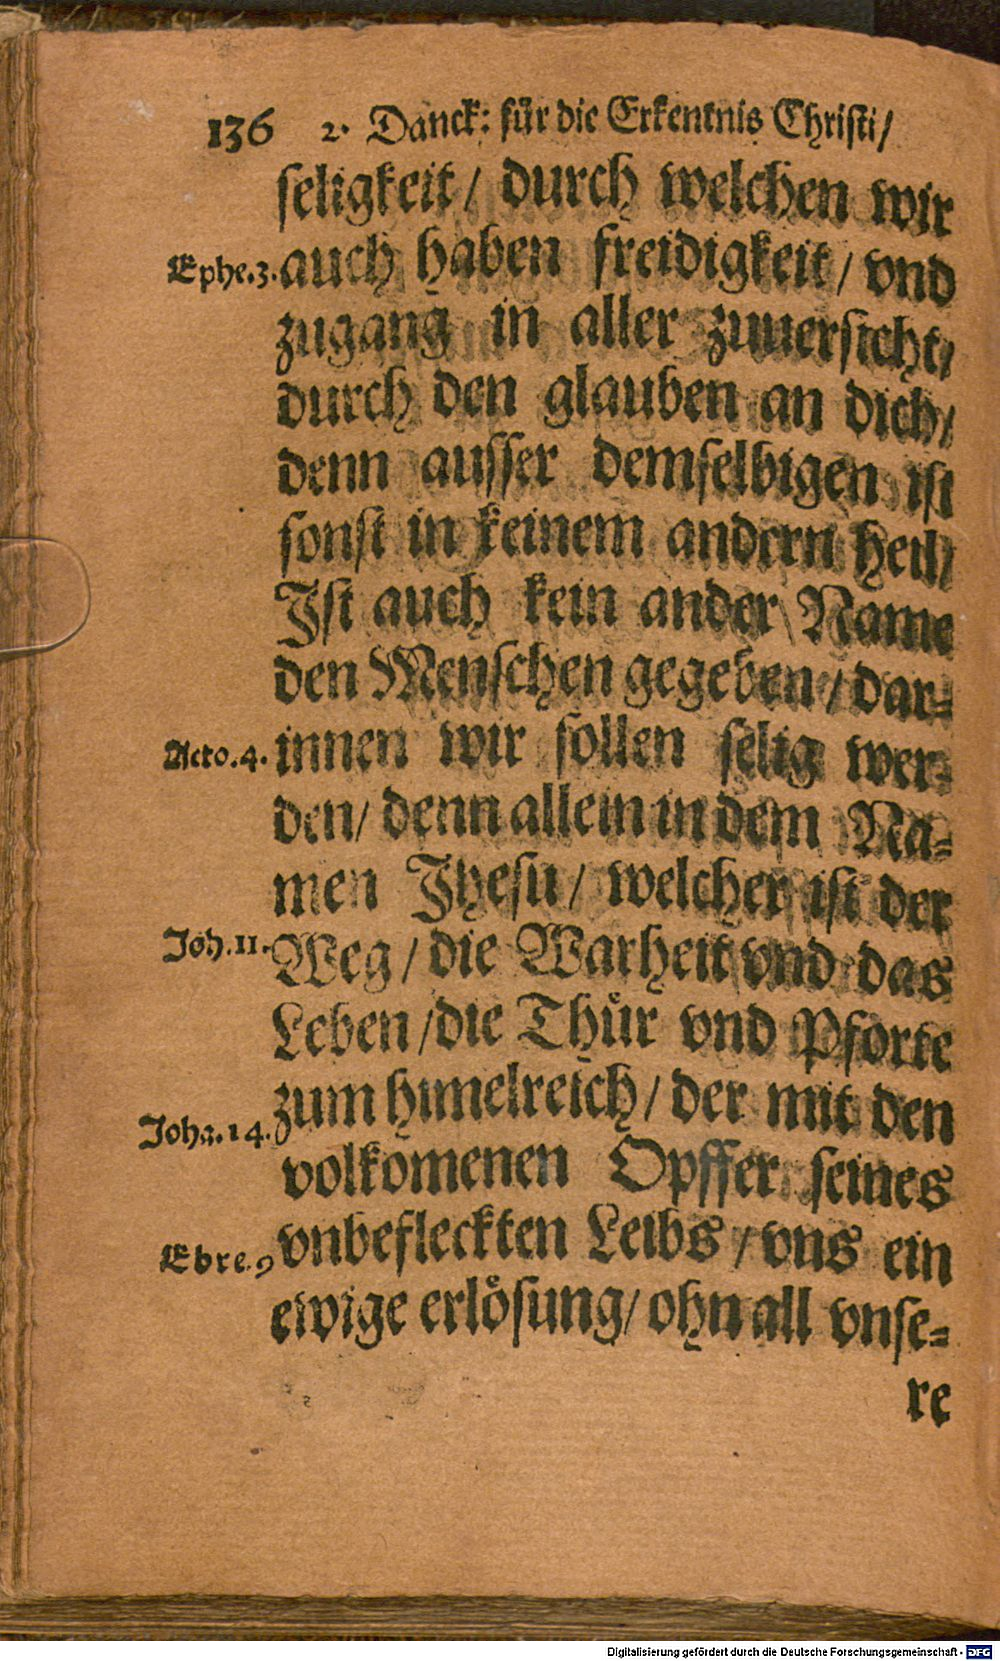 136 2. Danck: für die Erkentnis Christi/
seligkeit/ durch welchen wir
Ephe.3. auch haben freidigkeit/ vnd
zugang in aller zuuersicht/
durch den glauben an dich/
denn ausser demselbigen ist
sonst in keinem andern heil/
Ist auch kein ander Name
den Menschen gegeben/ dar=
Acto.4. innen wir sollen selig wer=
den/ denn allein in dem Na=
men Jhesu/ welcher ist der
Joh.11. Weg/ die Warheit vnd das
Leben/ die Thür vnd Pforte
zum himelreich/ der mit den
Joha.14.
volkomenen Opffer seines
Ebre.9 vnbefleckten Leibs/ vns ein
ewige erlösung/ ohn all vnse=
re
Digitalisierung gefördert durch die Deutsche Forschungsgemeinschaft - DFG